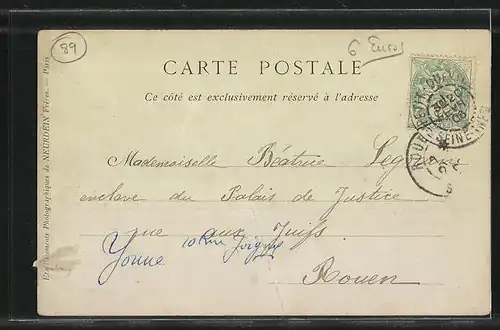 89
6 Euros
CARTE POSTALE
Ce côté est exclusivement réservé à l'adresse
Mademoiselle Béatrie
enclave du Palais de Justice
rue aux Juifs
Yonne 10 Rue Joigny
Rouen
Etablissements Photographiques de NEURDEIN Frères. — Paris